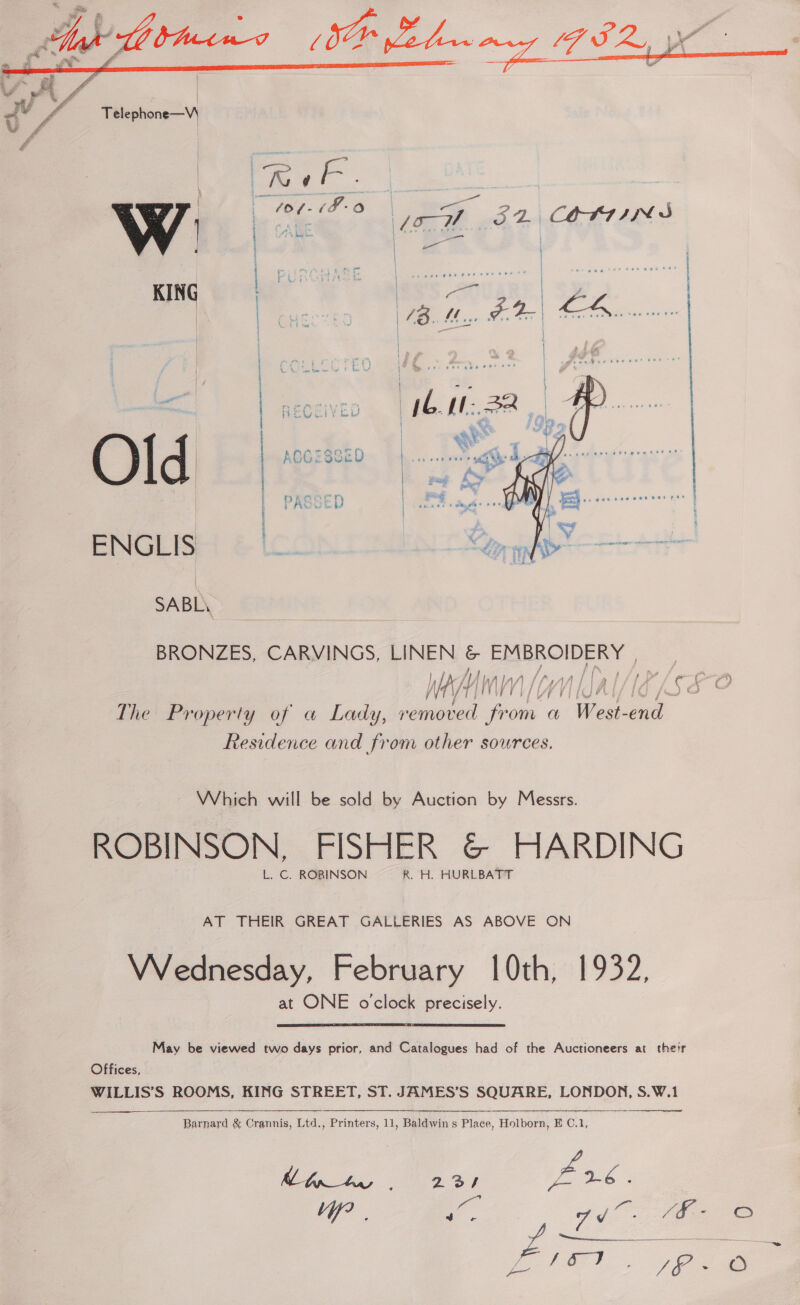 10th February 1932
Telephone—W
R & F.
W
SALE 10th 32 COMINS
KING
PURCHASE
CHECKED
COLLECTED
RECEIVED 16.11.32
Old
ACCESSED
PASSED
ENGLIS
SABL
BRONZES, CARVINGS, LINEN & EMBROIDERY
The Property of a Lady, removed from a West-end
Residence and from other sources.
Which will be sold by Auction by Messrs.
ROBINSON, FISHER & HARDING
L. C. ROBINSON R. H. HURLBATT
AT THEIR GREAT GALLERIES AS ABOVE ON
Wednesday, February 10th, 1932,
at ONE o'clock precisely.
May be viewed two days prior, and Catalogues had of the Auctioneers at their
Offices,
WILLIS'S ROOMS, KING STREET, ST. JAMES'S SQUARE, LONDON, S.W.1
Barnard & Crannis, Ltd., Printers, 11, Baldwin s Place, Holborn, E C.1,
231 £26.
18 - 0
18 - 0